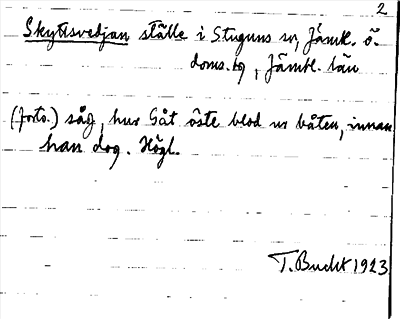 2
Skyttsvedjan ställe i Stuguns sn, Jämtl. ö.
doms.sg, Jämtl. län
(forts.) såg, hur Gåt öste blod ur båten, innan
han dog. Högl.
T. Bucht 1923